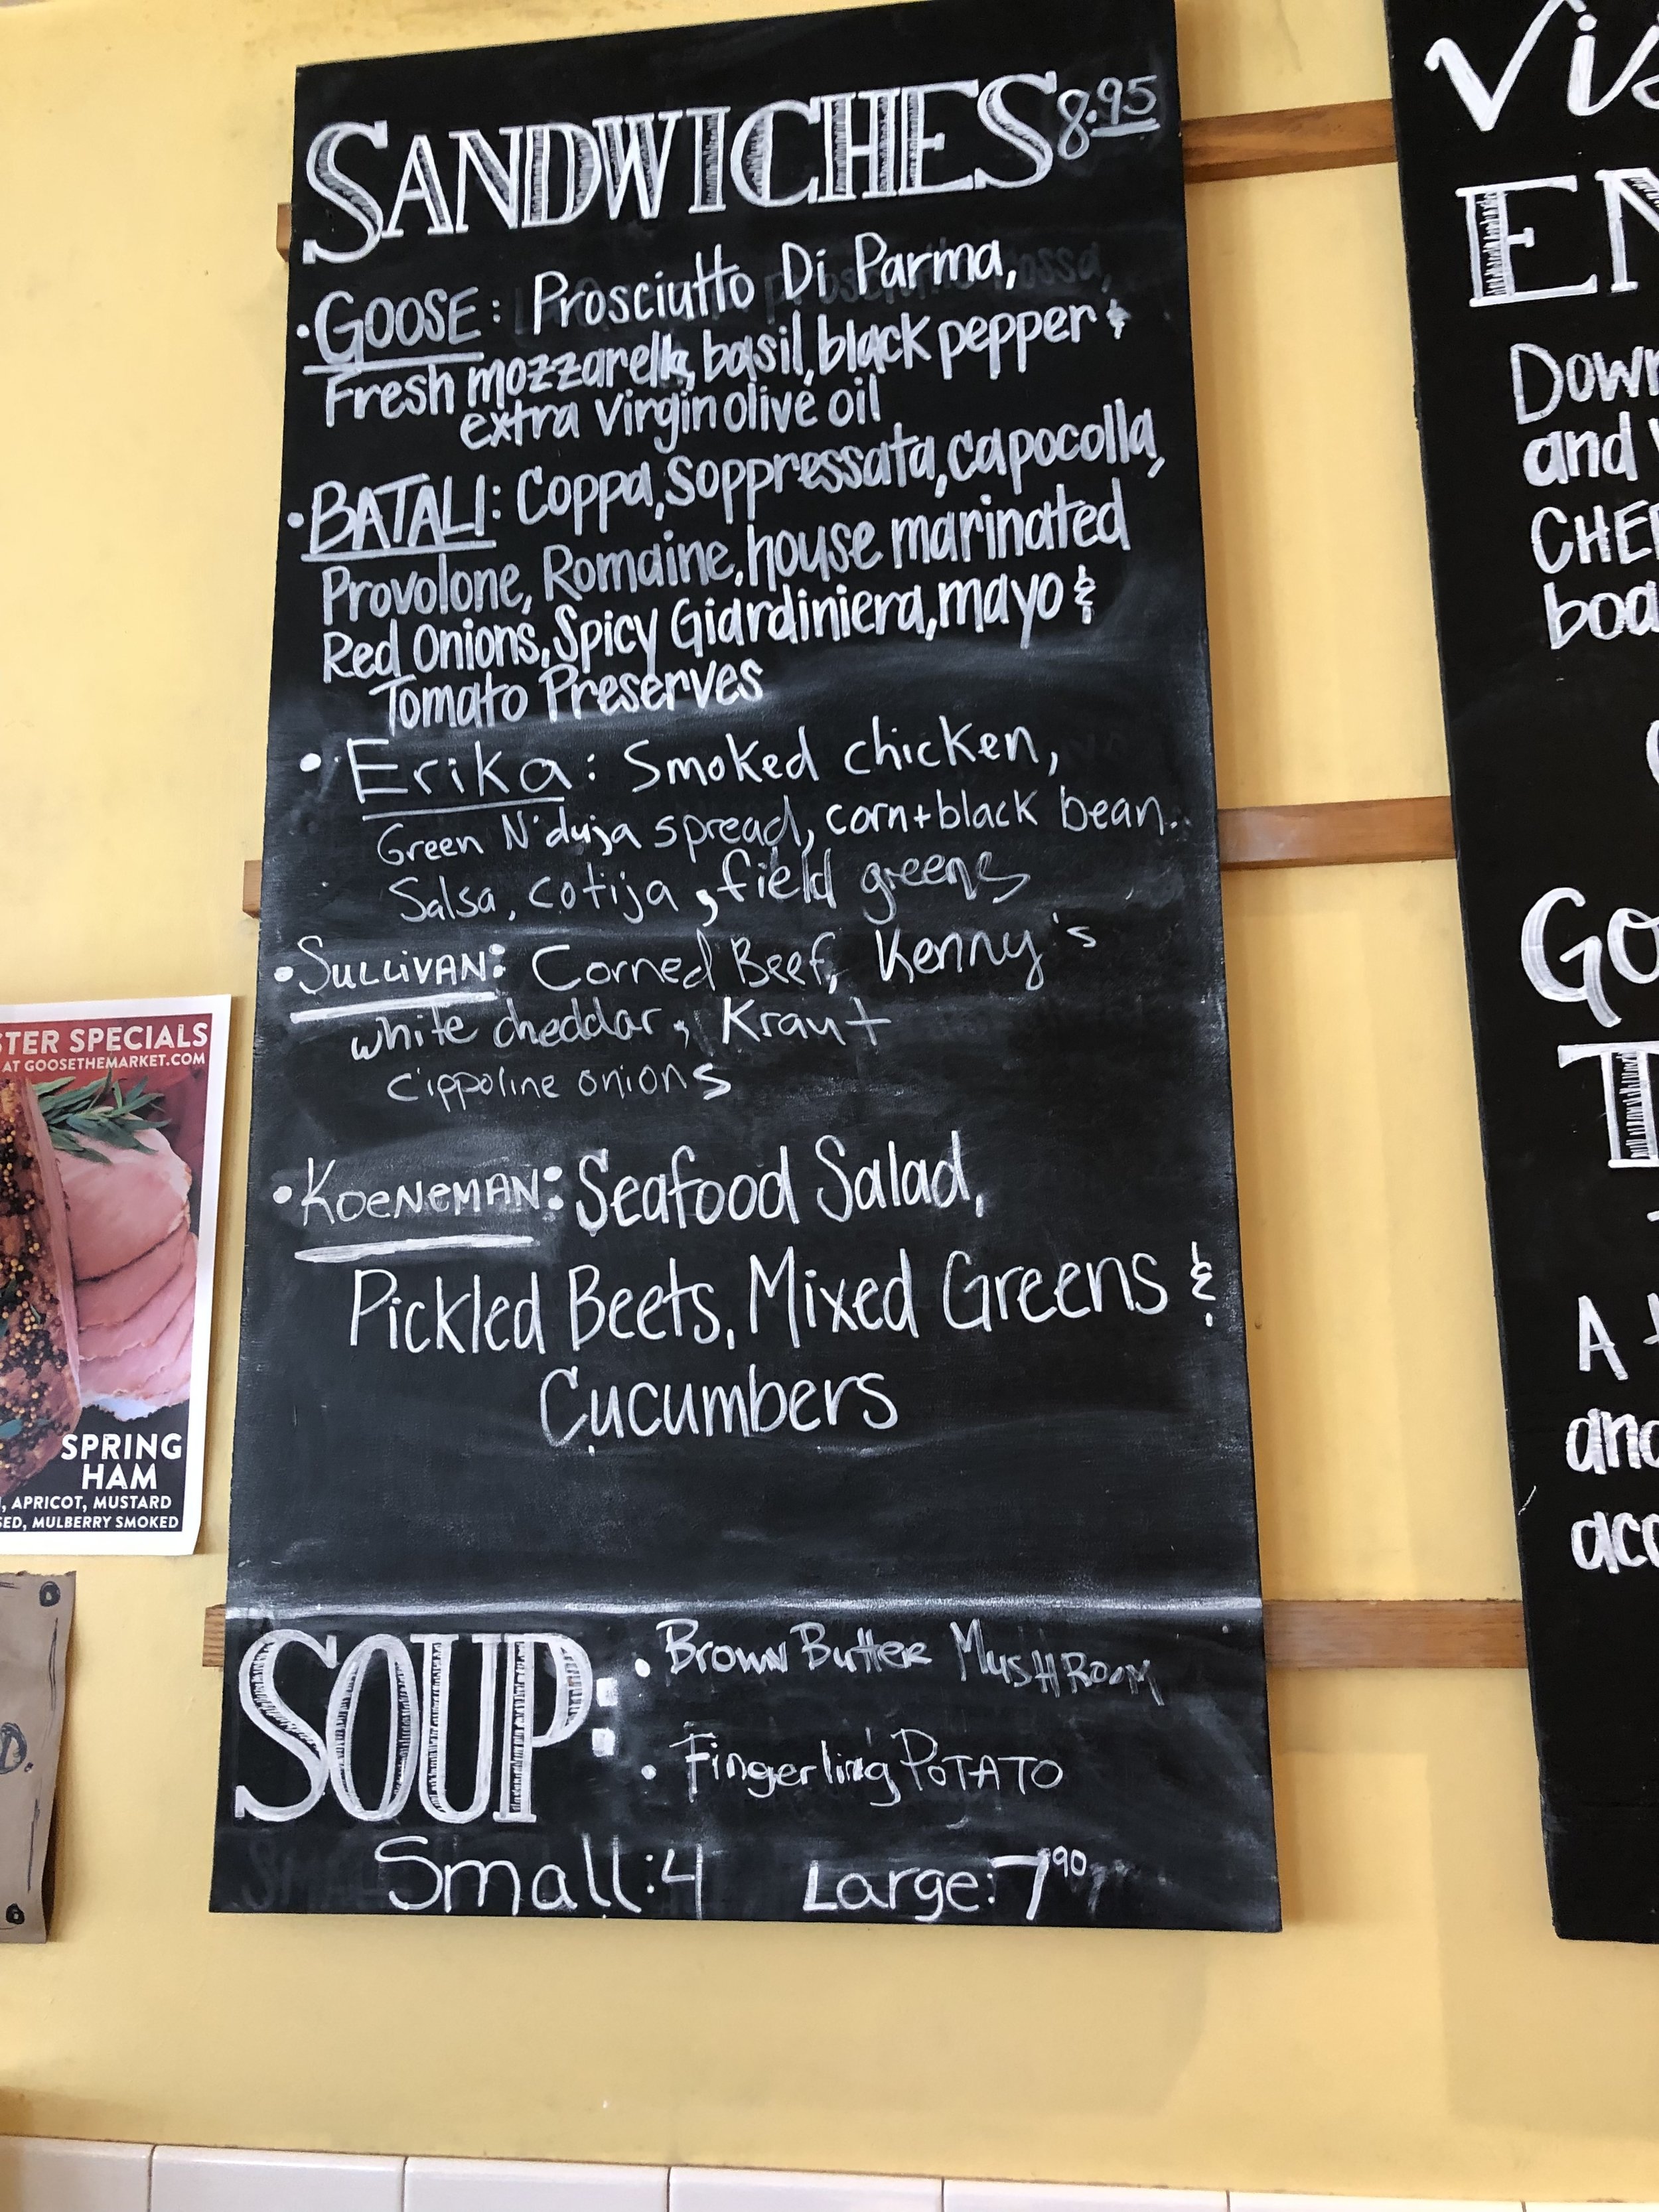 SANDWICHES 8.95
• GOOSE: Prosciutto Di Parma,
Fresh mozzarella, basil, black pepper &
extra virgin olive oil
• BATALI: Coppa, Soppressata, capocolla,
Provolone, Romaine, house marinated
Red Onions, Spicy Giardiniera, mayo &
Tomato Preserves
• Erika: Smoked chicken,
Green N'duja spread, corn+black bean
Salsa, cotija, field greens
• SULLIVAN: Corned Beef, Kenny's
white cheddar, Kraut
cippoline onions
• KOENEMAN: Seafood Salad,
Pickled Beets, Mixed Greens &
Cucumbers
SOUP:
• Brown Butter MUSHROOM
• Fingerling POTATO
Small: 4 Large: 7 90
STER SPECIALS
AT GOOSETHEMARKET.COM
SPRING
HAM
, APRICOT, MUSTARD
SED, MULBERRY SMOKED
Vis
EN
Down
and
CHE
boa
Go
T
A
and
acc